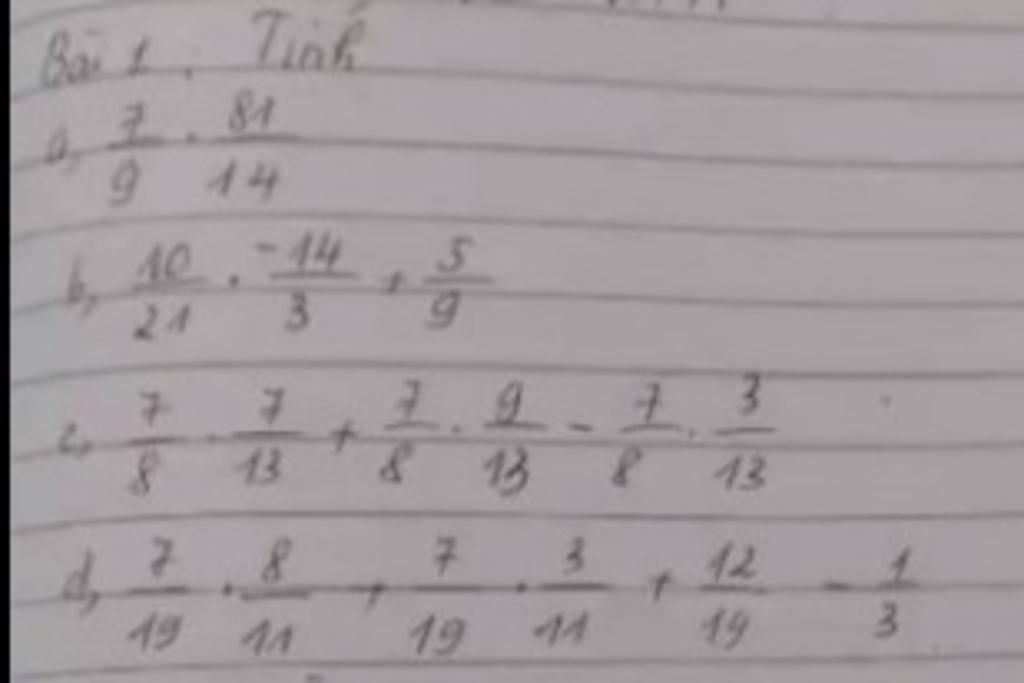 Bài 1. Tính
a, 7/9 . 81/14
b, 10/21 . -14/3 + 5/9
c, 7/8 . 7/13 + 7/8 . 9/13 - 7/8 . 3/13
d, 7/19 . 8/11 + 7/19 . 3/11 + 12/19 - 1/3